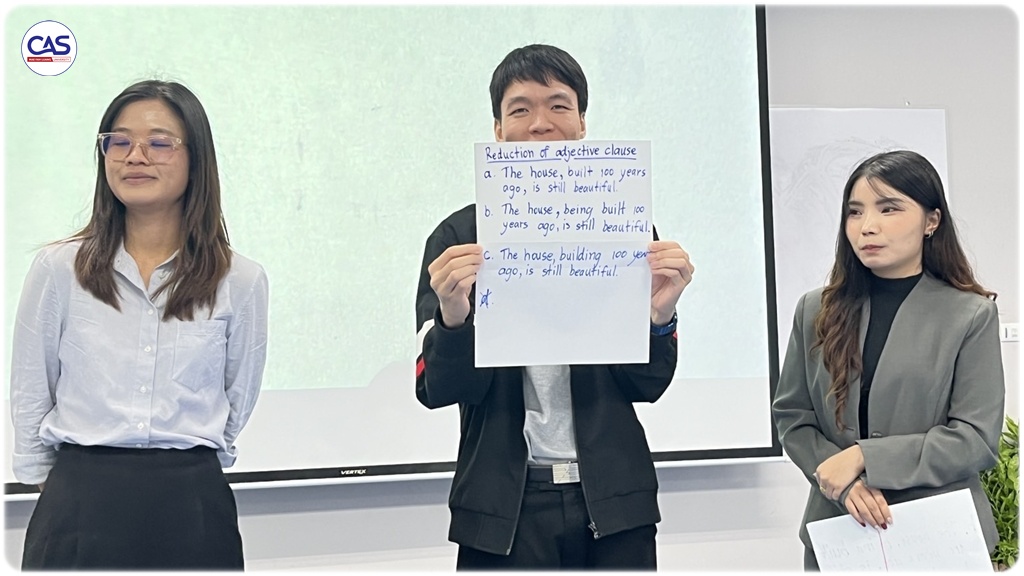 CAS
Reduction of adjective clause
a. The house, built 100 years
ago, is still beautiful.
b. The house, being built 100
years ago, is still beautiful.
c. The house, building 100 year
ago, is still beautiful.
d.
VERTEX